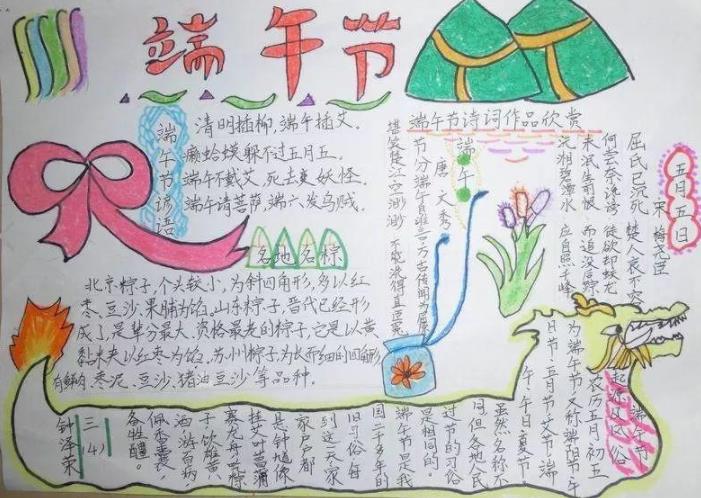 端午节
端午节谚语
清明插柳,端午插艾。
癞蛤蟆躲不过五月五。
端午不戴艾,死去变妖怪。
端午请菩萨,端六发乌贼。
各地名粽
北京粽子,个头较小,为斜四角形,多以红
枣、豆沙、果脯为馅。山东粽子,晋代已经形
成了,是辈分最大、资格最老的粽子,它是以黄
黏米夹以红枣为馅。苏州粽子为长而细的四角形
有鲜肉、枣泥、豆沙、猪油豆沙等品种。
端午节诗词作品欣赏
五月五日
宋 梅尧臣
屈氏已沉死 楚人哀不容
何尝奈谗谤 徒欲却蛟龙
未泯生前恨 而追没后踪
沅湘碧潭水 应自照千峰
端午
唐 文秀
节分端午自谁言 万古传闻为屈原
堪笑楚江空渺渺 不能洗得直臣冤
端午节
起源及风俗
农历五月初五
为端午节又称端阳节、午
日节、五月节、艾节、端
午、午日、夏节。
虽然名称不
同但各地人民
过节的习俗
是相同的。
端午节是我
国二千多年的
旧习俗每
到这一天家
家户户都
悬钟馗像
挂艾叶菖蒲
赛龙舟吃粽
子饮雄黄
酒游百病
佩香囊,
备牲醴。
三(4)
钟泽荣